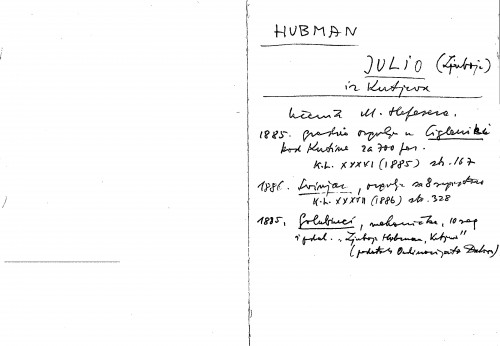 HUBMAN
JULIO (Ljuboje)
iz Kutjeva
Učenik M. Hefferera.
1885. gradio orgulje u Ciglenici
kod Kutine za 700 for.
K.L. XXXVI (1885) str. 167
1886. , orgulje sa 8 registara
K.L. XXXVII (1886) str. 328
1895. Golubinci, mehaničke, 10 reg
i pedal. „Ljuboje Hubman, Kutjevo"
(podatak